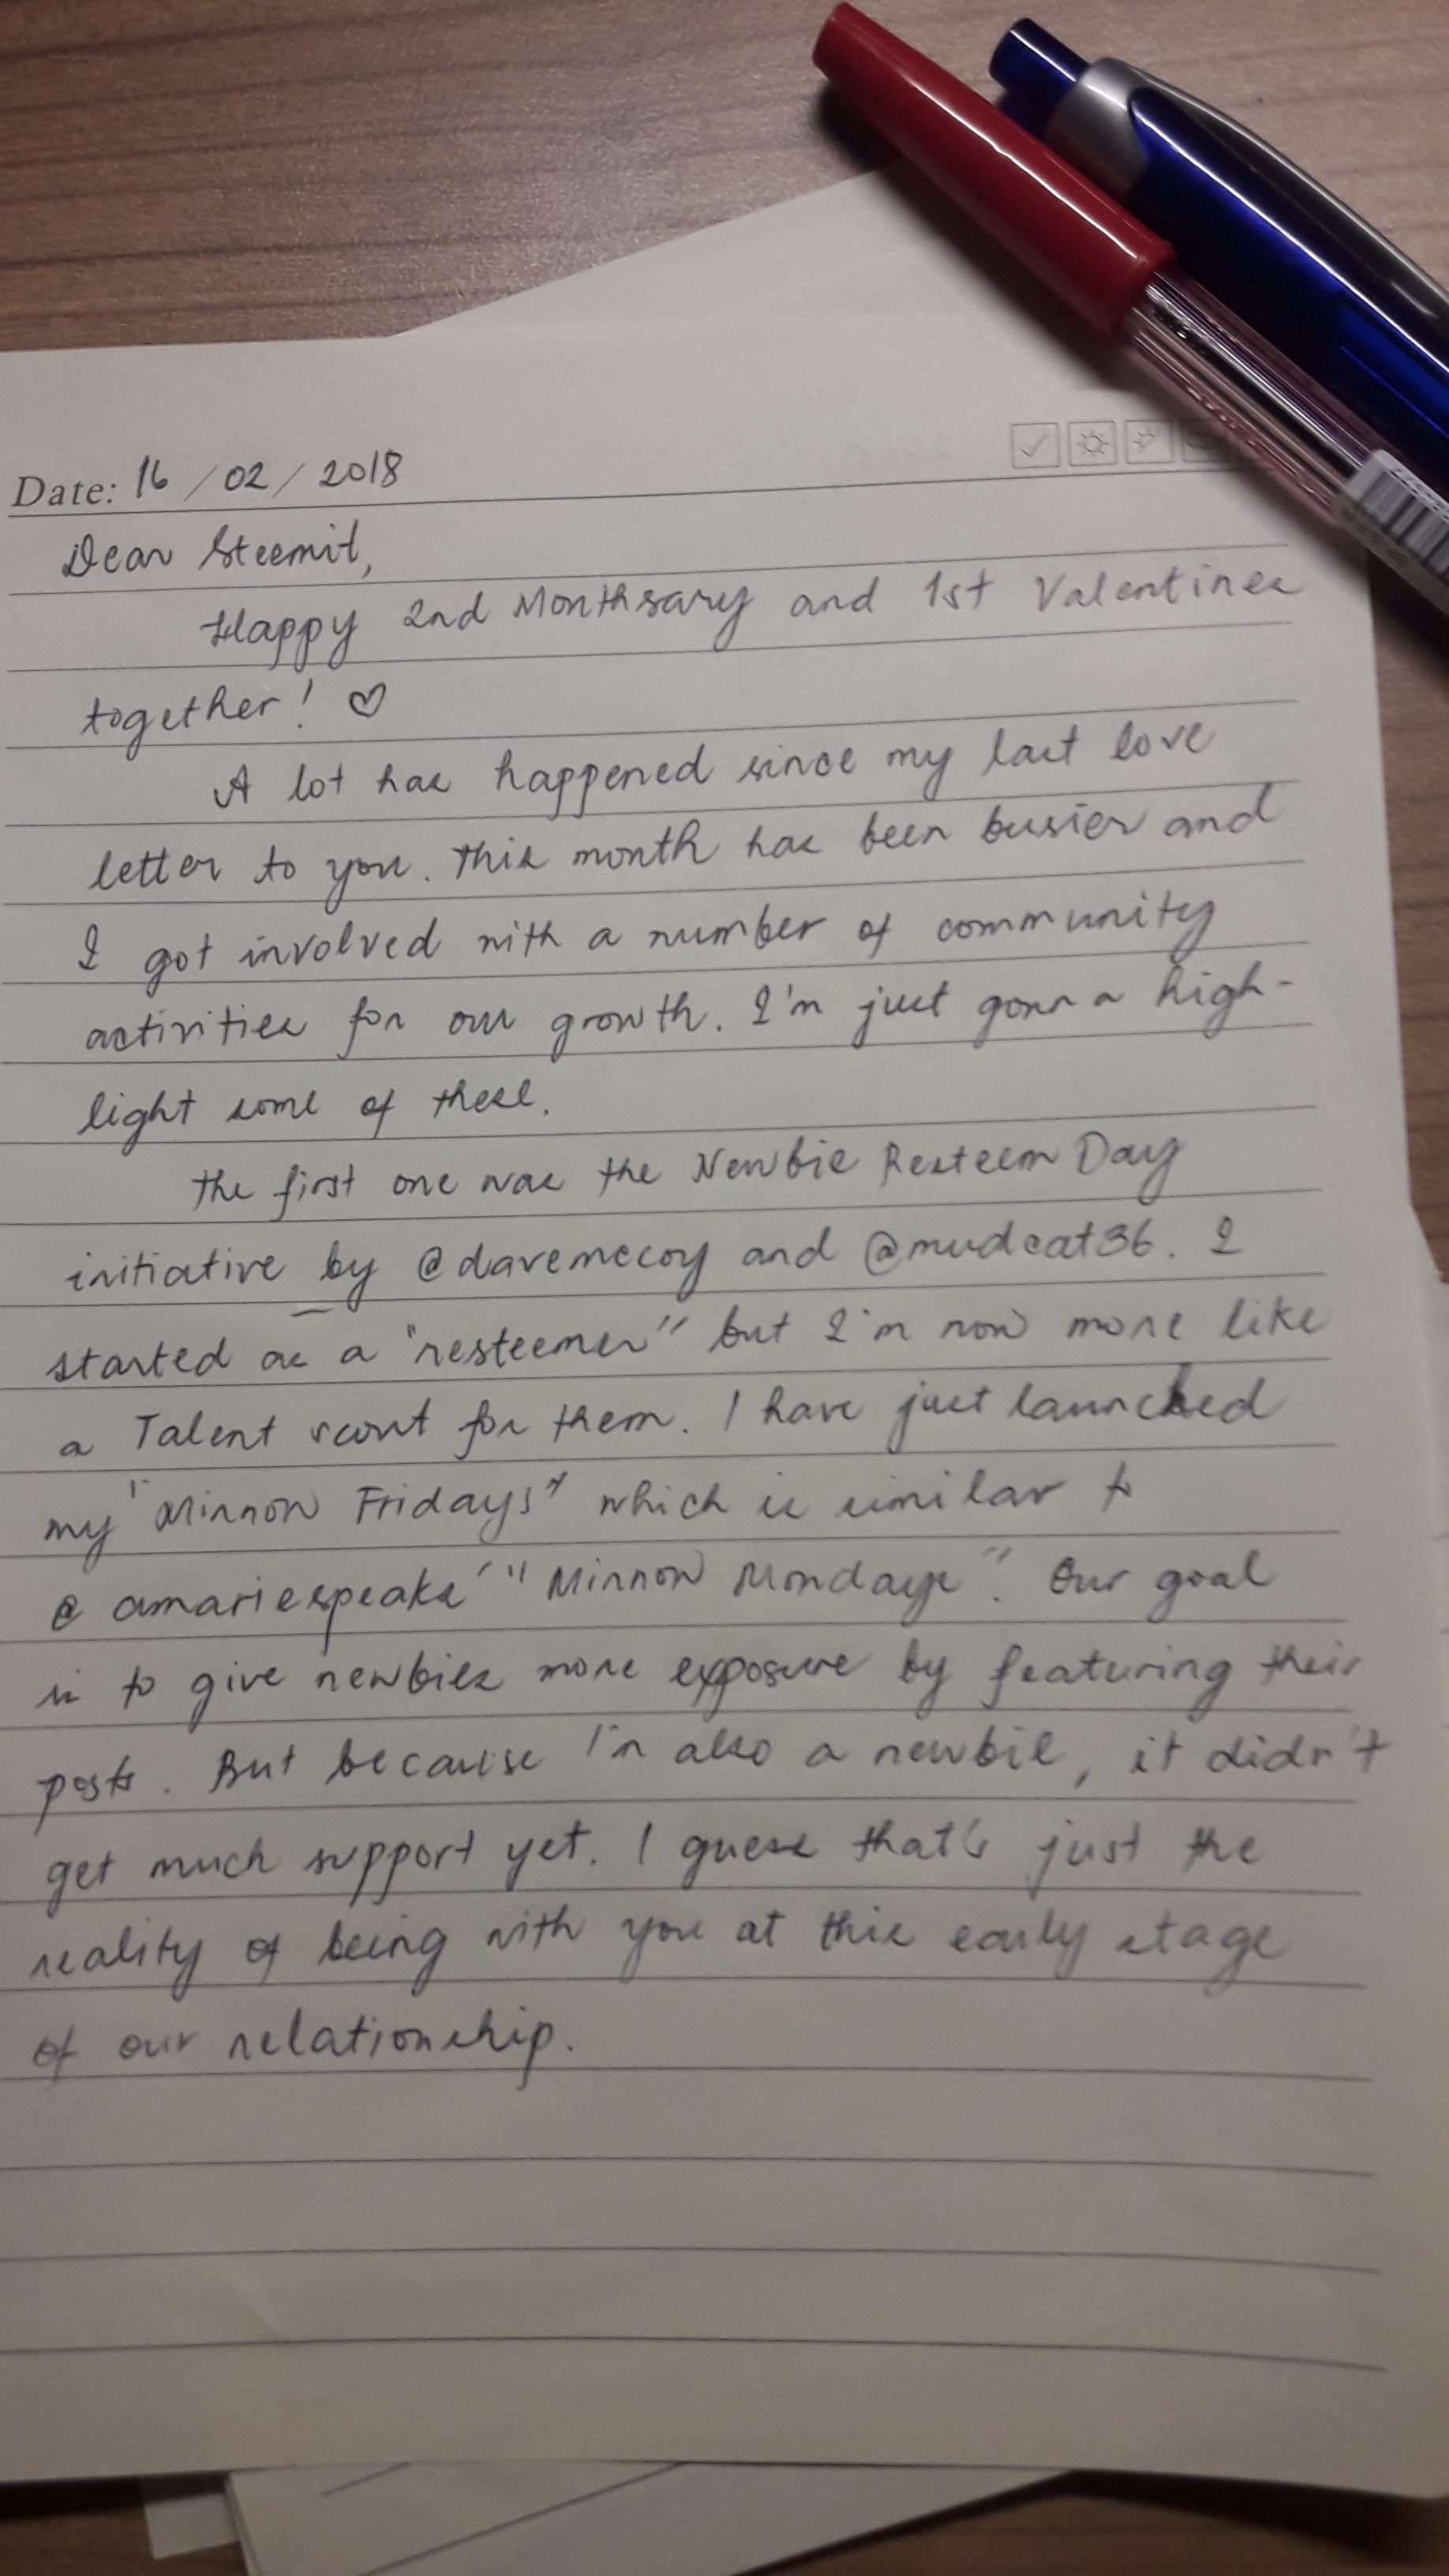 Date: 16 / 02 / 2018
Dear Steemit,
Happy 2nd Monthsary and 1st Valentines
together! ♡
A lot has happened since my last love
letter to you. This month has been busier and
I got involved with a number of community
activities for our growth. I'm just gonna high-
light some of these.
The first one was the Newbie Resteem Day
initiative by @davemccoy and @mudcat36. I
started as a "resteemer" but I'm now more like
a Talent scout for them. I have just launched
my "Minnow Fridays" which is similar to
@amariespeaks' "Minnow Mondays". Our goal
is to give newbies more exposure by featuring their
posts. But because I'm also a newbie, it didn't
get much support yet. I guess that's just the
reality of being with you at this early stage
of our relationship.